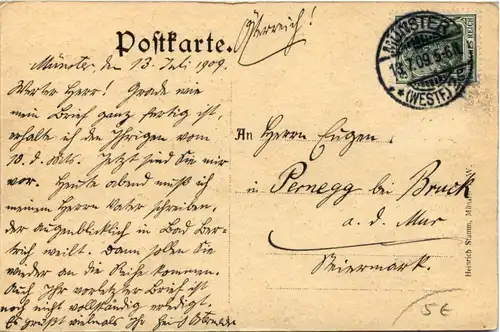 Österreich!
Postkarte.
MÜNSTER
13.7.09.5-6N
* (WESTF.)
Münster den 13. Juli 1909.
Werter Herr! Grade wie
mein Brief ganz fertig ist,
erhalte ich den Ihrigen vom
10. d. Mts. Jetzt sind Sie mir
vor. Heute abend muß ich
meinem Herrn Vater schreiben,
der augenblicklich in Bad Ber-
trich weilt. Dann sollen Sie
wieder an die Reihe kommen.
Auch Ihr vorletzter Brief ist
noch nicht vollständig erledigt.
Es grüßt vielmals Ihr
An Herrn Eugen,
in Pernegg bei Bruck
a. d. Mur
Steiermark.
Heinrich Stamm, Münster i. W.
5€